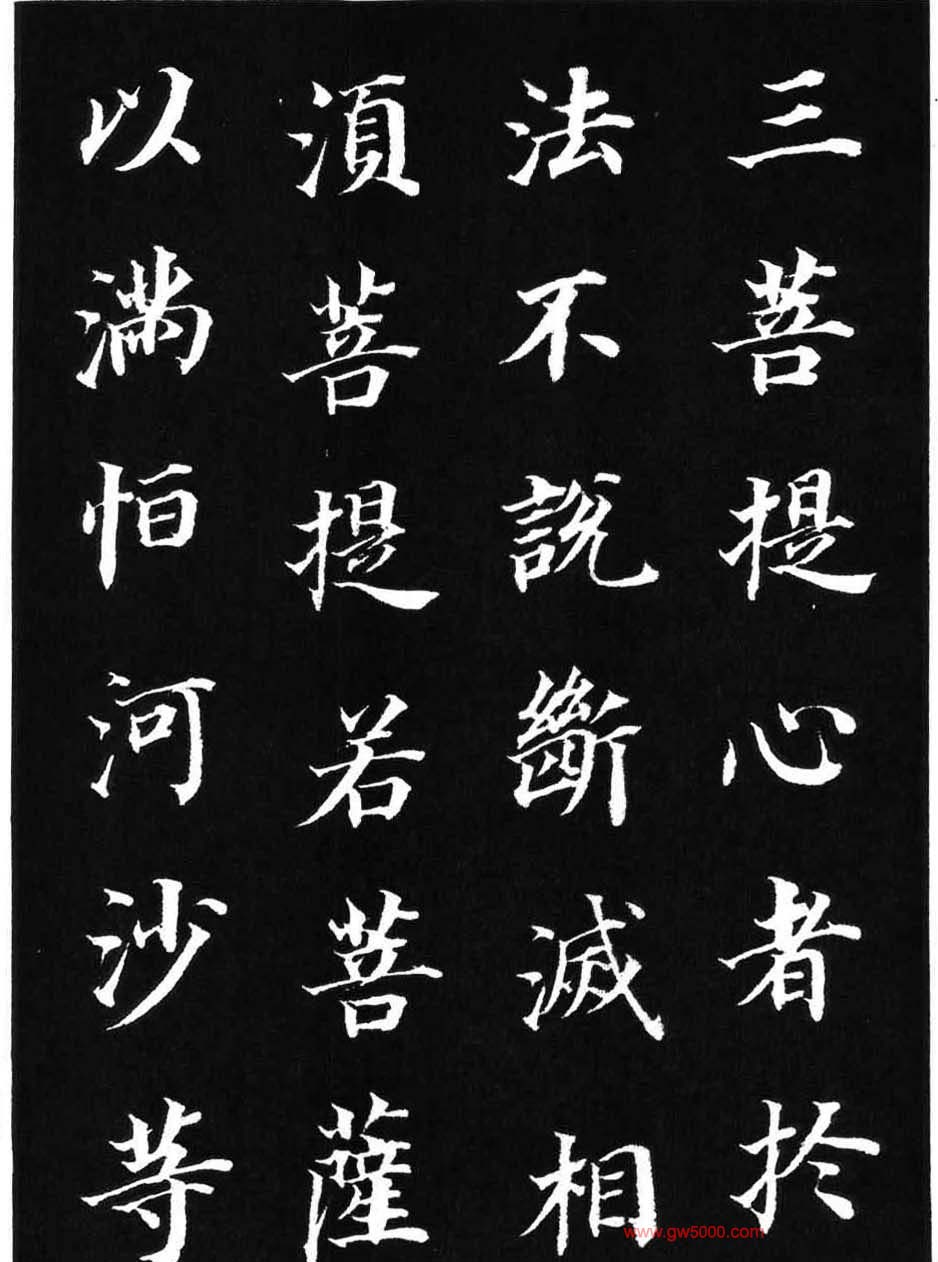 三菩提心者於
法不說斷滅相
湏菩提若菩薩
以滿恒河沙等
www.gw5000.com